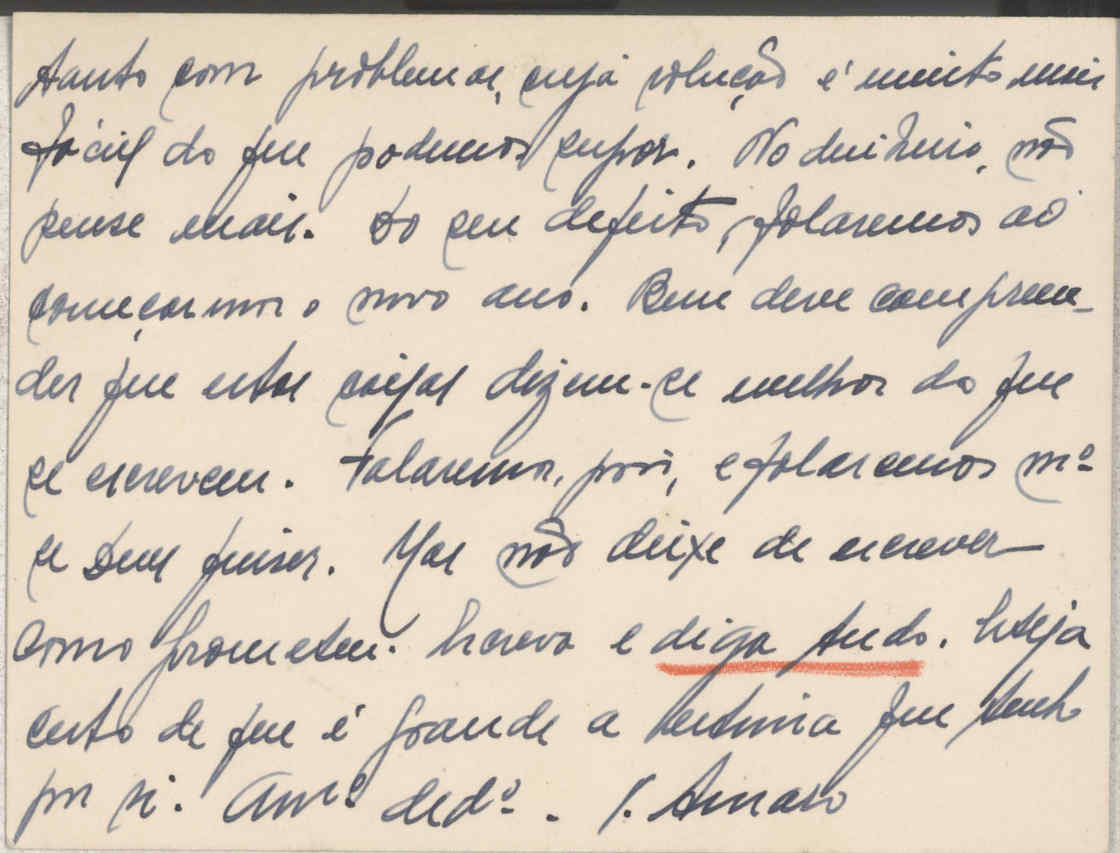 tanto com problemas, cuja solução é muito mais
fácil do que podemos supor. No dinheiro, não
pense mais. Do seu defeito, falaremos ao
começarmos o novo ano. Bem deve compreen-
der que estas coisas dizem-se melhor do que
se escrevem. Falaremos, pois, e falaremos mº
se Deus quiser. Mas não deixe de escrever
como prometeu. Escreva e diga tudo. Esteja
certo de que é grande a estima que tenho
por si. Amº dedº. J.